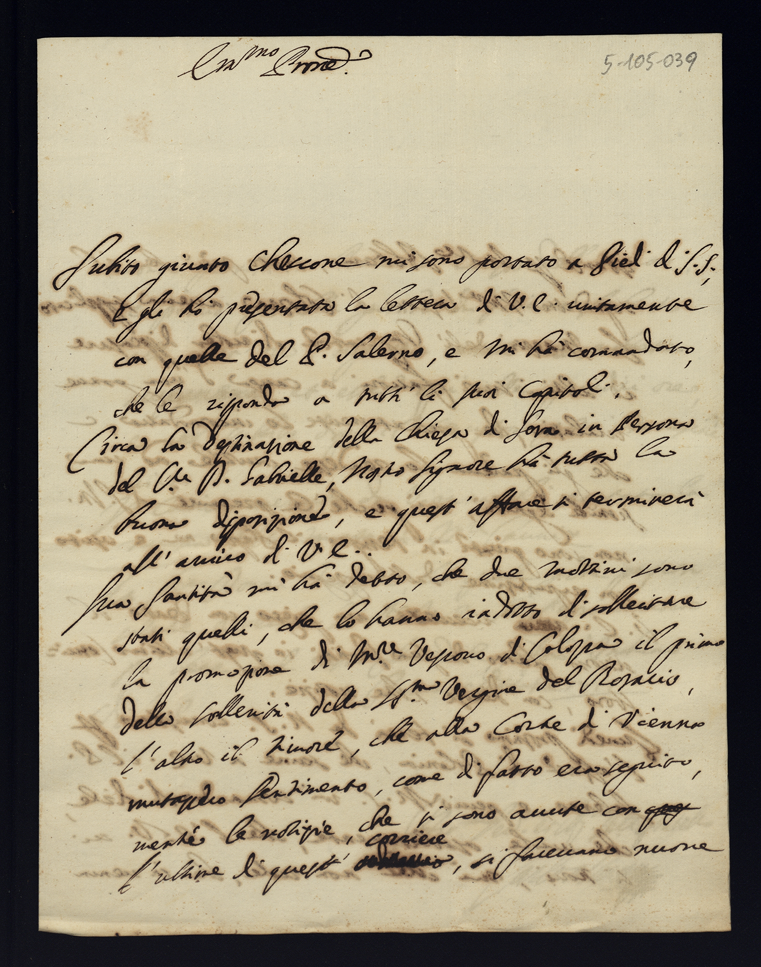 5-105-039
Em.mo Prone
Subito giunto Checcone mi sono portato a Piedi di S.S.,
e gli hò presentata la lettera di V.E. unitamente
con quelle del P. Salerno, e mi hà comandato,
che le risponda a tutti li suoi Capitoli.
Circa la destinazione della Chiesa di Sora in Persona
del P. Gabrielle, Nostro Signore hà tutta la
buona disposizione, e quest'affare si terminerà
all'arrivo di V.E..
Sua Santità mi hà detto, che due motivi sono
stati quelli, che lo hanno indotto di sollecitare
la promozione di Mre Vescovo di Colozza il primo
della sollennità della SSma Vergine del Rosario,
l'altro il timore, che alla Corte di Vienna
mutassero sentimento, come di fatto era seguito,
mentre le notizie, che si sono avute con
l'ultime di quest' corriere, si facevano nuove